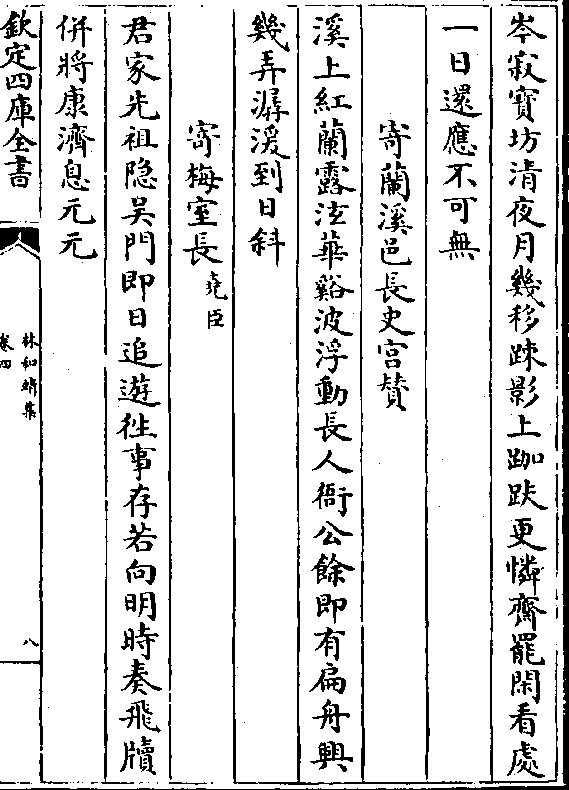 岑寂寶坊清夜月幾移踈影上跏趺更憐齋罷閑看處
一日還應不可無
寄蘭溪邑長史宫贊
溪上紅蘭露泫華谿波浮動長人衙公餘即有扁舟興
幾弄潺湲到日斜
寄梅室長堯臣
君家先祖隐吳門即日追遊徃事存若向明時奏飛牘
併將康濟息元元
欽定四庫全書
林和靖集
卷四
八